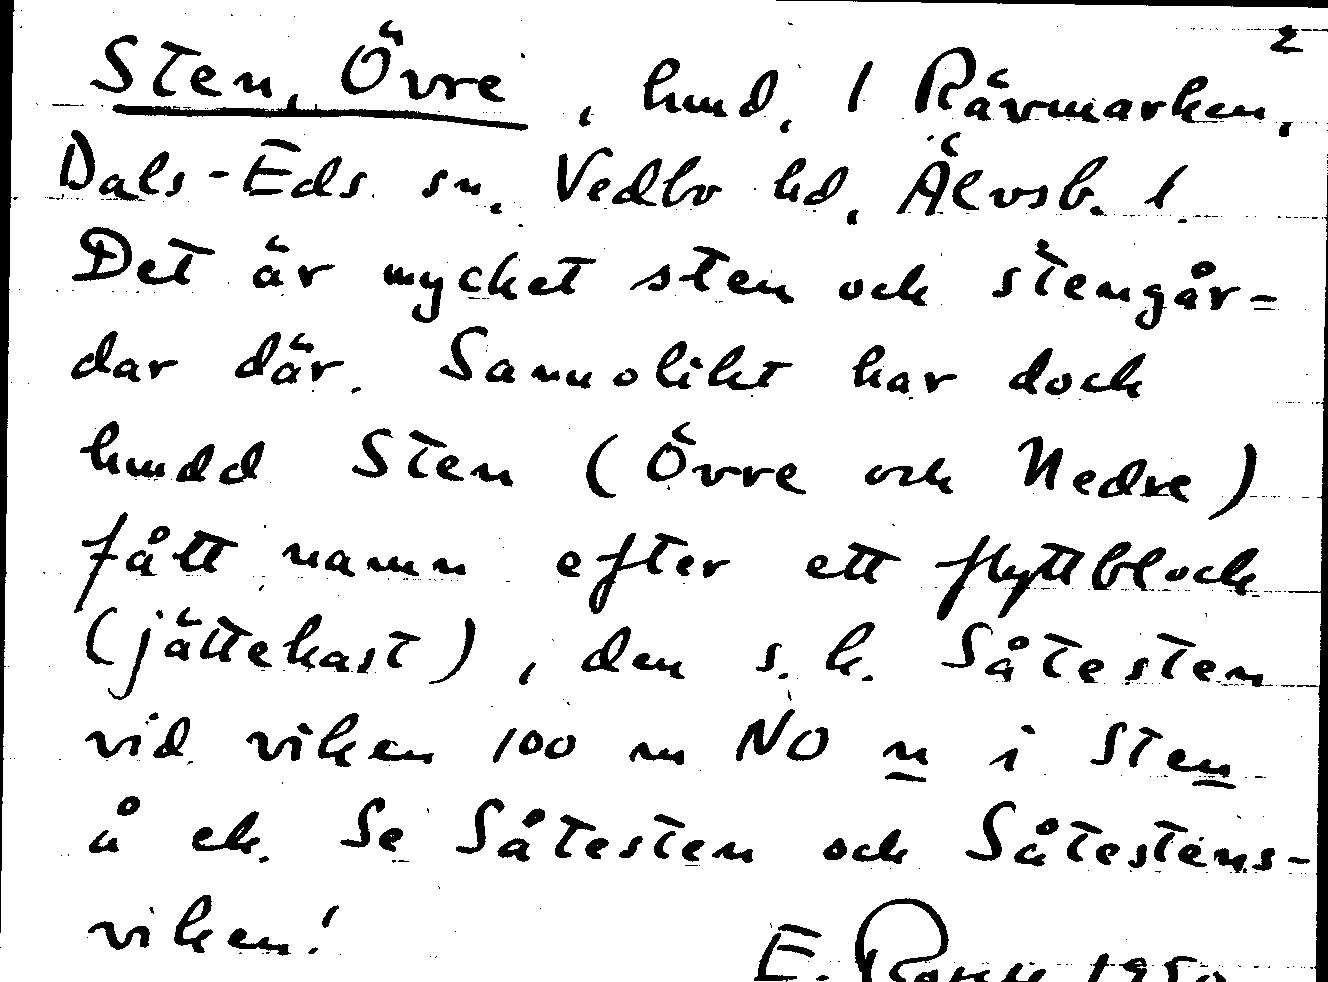 2
Sten, Övre, hmd, 1 Rävmarken,
Dals-Eds sn. Vedbo hd, Älvsb. l.
Det är mycket sten och stengår-
dar där. Sannolikt har doch
hmdd Sten (Övre och Nedre)
fått namn efter ett flyttblock
(jättekast), den s.k. Såtesten
vid viken 100 m NO n i Sten
å ek. Se Såtesten och Såtestens-
viken!
E.